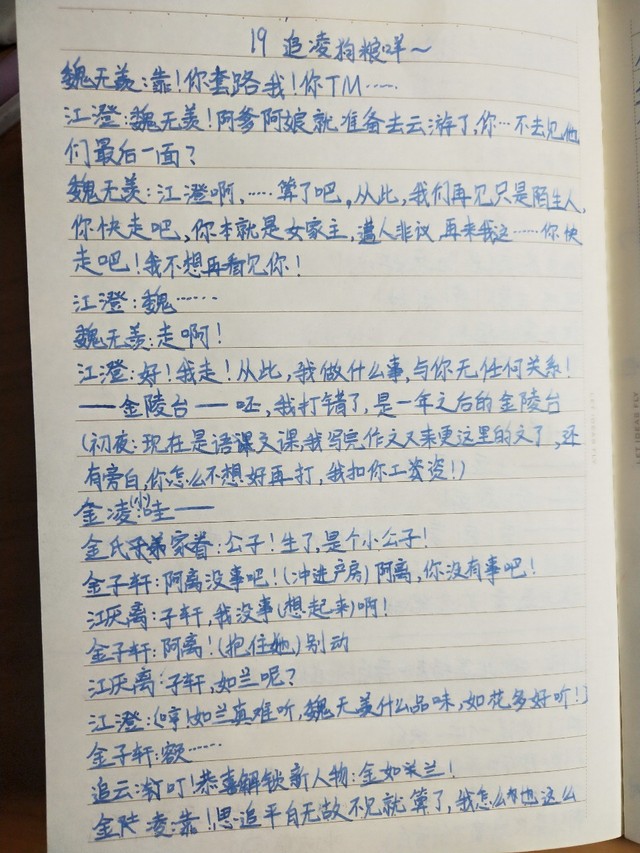 19 追凌狗粮咩~
魏无羡:靠!你套路我!你TM……
江澄:魏无羡!阿爹阿娘就准备去云游了,你…不去见他
们最后一面?
魏无羡:江澄啊,……算了吧,从此,我们再见只是陌生人,
你快走吧,你本就是女家主,遭人非议,再来我这……你快
走吧!我不想再看见你!
江澄:魏……
魏无羡:走啊!
江澄:好!我走!从此,我做什么事,与你无任何关系!
——金陵台——呸,我打错了,是一年之后的金陵台
(初夜:现在是语课文课,我写完作文又来更这里的文了,还
有旁白,你怎么不想好再打,我扣你工资资!)
金凌(小):哇——
金氏家眷:公子!生了,是个小公子!
金子轩:阿离没事吧!(冲进产房)阿离,你没有事吧!
江厌离:子轩,我没事(想起来)啊!
金子轩:阿离!(抱住她)别动
江厌离:子轩,如兰呢?
江澄:(哼!如兰真难听,魏无羡什么品味,如花多好听!)
金子轩:额……
追云:叮!恭喜解锁新人物:金如兰!
金凌:靠!思追平白无故不见就算了,我怎么也这么